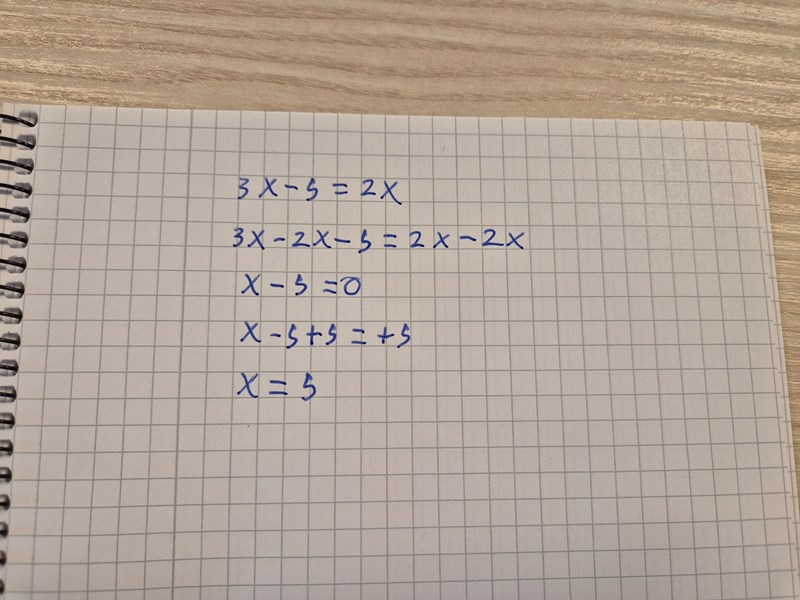 3x-5=2x
3x-2x-5=2x-2x
x-5=0
x-5+5=+5
x=5